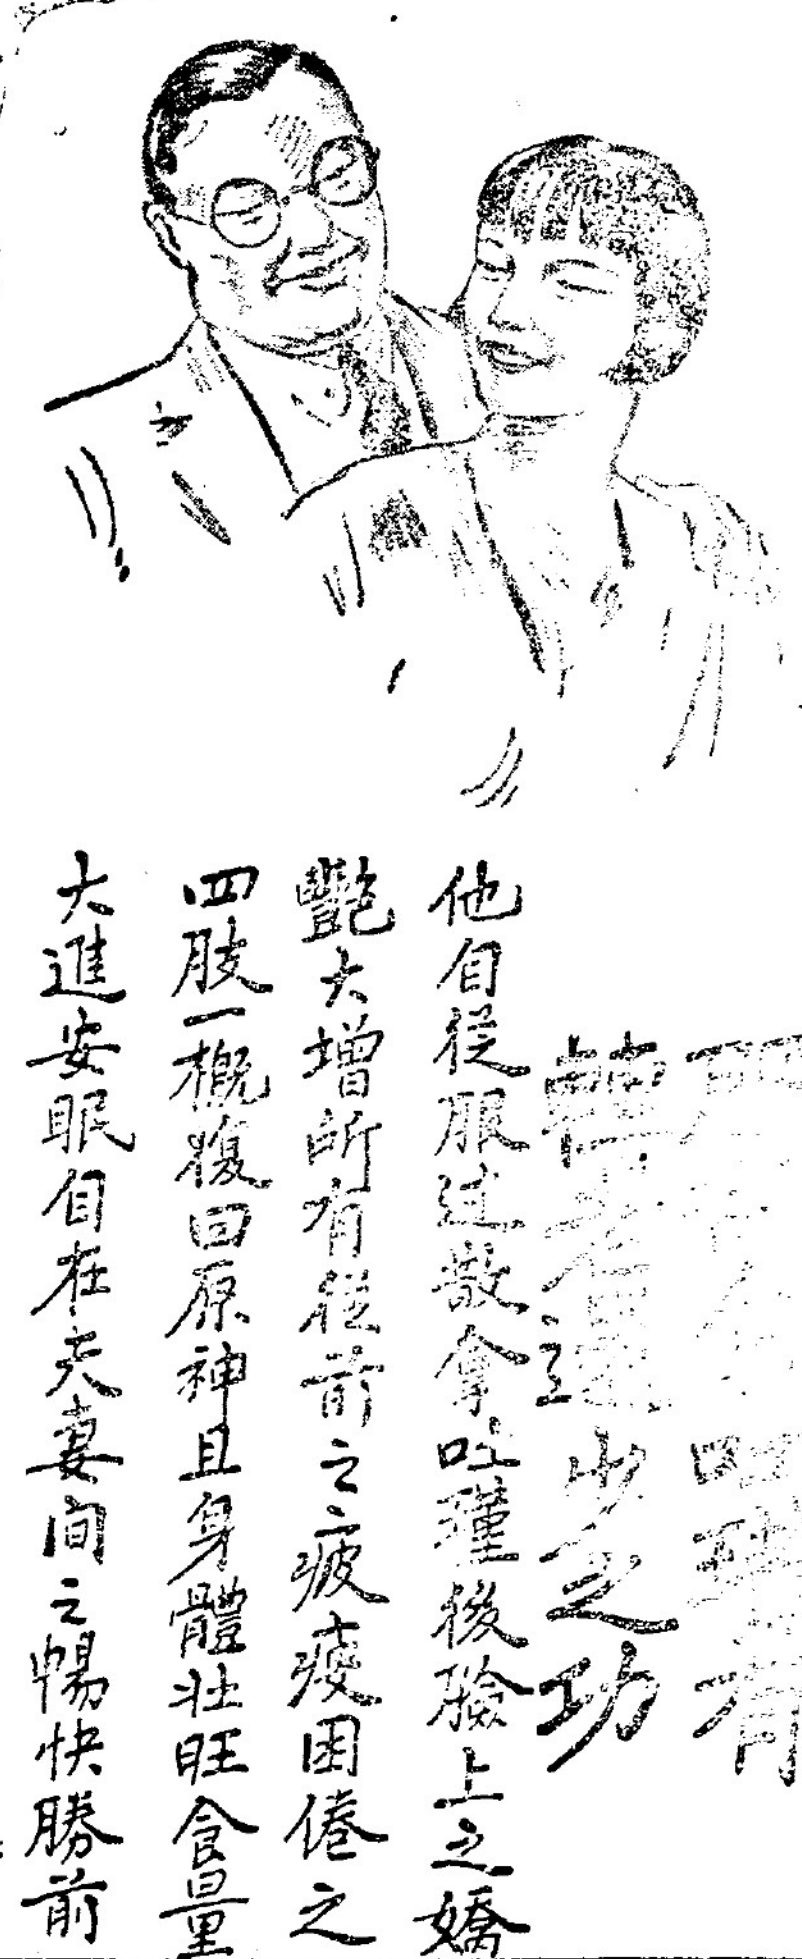 吐瑾有
老還少之功
他自從服过散拿吐瑾後臉上之嬌
艷大增所有從前之疲痠困倦之
四肢一概復回原神且身體壯旺食量
大進安眠自在夫妻间之暢快勝前